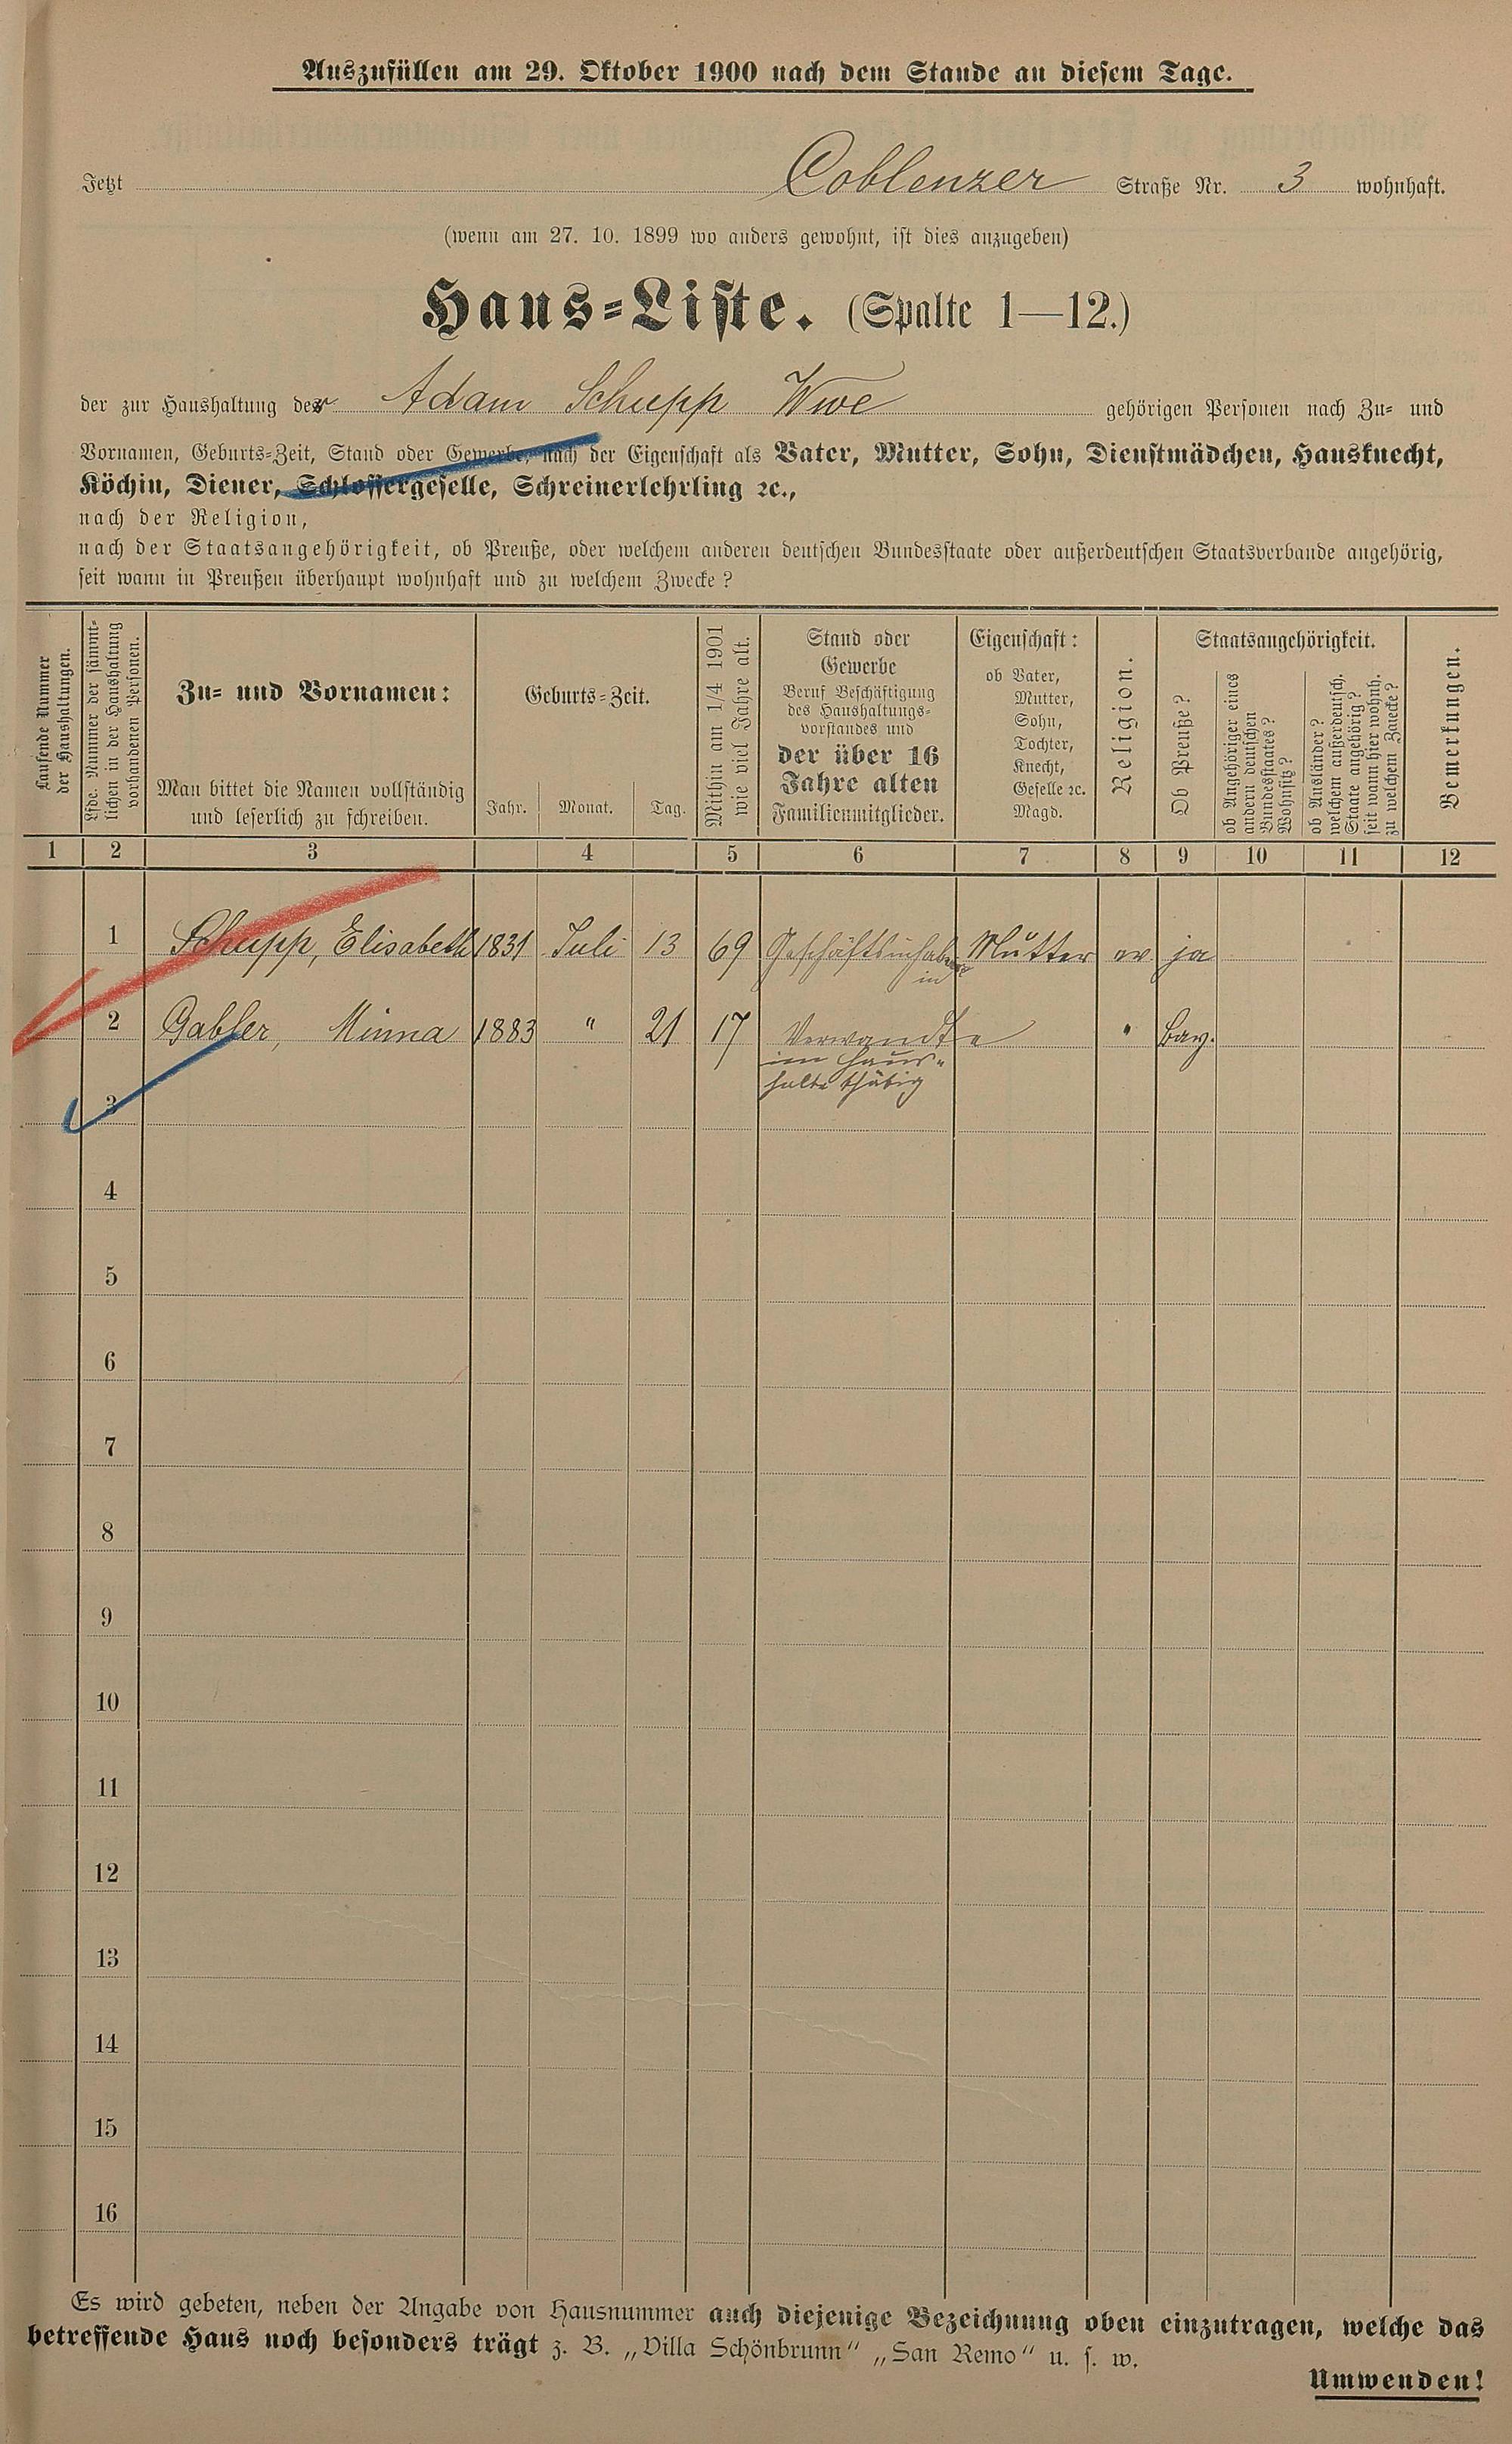 Auszufüllen am 29. Oktober 1900 nach dem Stande an diesem Tage.
Jetzt Coblenzer Straße Nr. 3 wohnhaft.
(wenn am 27. 10. 1899 wo anders gewohnt, ist dies anzugeben)
Haus-Liste. (Spalte 1—12.)
der zur Haushaltung der Adam Schupp Wwe gehörigen Personen nach Zu- und
Vornamen, Geburts-Zeit, Stand oder Gewerbe, nach der Eigenschaft als Vater, Mutter, Sohn, Dienstmädchen, Hausknecht,
Köchin, Diener, Schlossergeselle, Schreinerlehrling ꝛc.,
nach der Religion,
nach der Staatsangehörigkeit, ob Preuße, oder welchem anderen deutschen Bundesstaate oder außerdeutschen Staatsverbande angehörig,
seit wann in Preußen überhaupt wohnhaft und zu welchem Zwecke?
Laufende Nummer
der Haushaltungen.
Lfde. Nummer der sämmt-
lichen in der Haushaltung
vorhandenen Personen.
Zu- und Vornamen:
Man bittet die Namen vollständig
und leserlich zu schreiben.
Geburts-Zeit.
Jahr. Monat. Tag.
Mithin am 1/4 1901
wie viel Jahre alt.
Stand oder
Gewerbe
Beruf Beschäftigung
des Haushaltungs-
vorstandes und
der über 16
Jahre alten
Familienmitglieder.
Eigenschaft:
ob Vater,
Mutter,
Sohn,
Tochter,
Knecht,
Geselle ꝛc.
Magd.
Religion.
Staatsangehörigkeit.
Ob Preuße?
ob Angehöriger eines
andern deutschen
Bundesstaates?
Wohnsitz?
ob Ausländer?
welchem außerdeutsch.
Staate angehörig?
seit wann hier wohnh.
zu welchem Zwecke?
Bemerkungen.
1 2 3 4 5 6 7 8 9 10 11 12
1 Schupp, Elisabeth 1831 Juli 13 69 Geschäftsinhaber Mutter ev ja
in
2 Gabler, Minna 1883 " 21 17 Verwandte " Bay.
im Haus-
halte thätig
3
4
5
6
7
8
9
10
11
12
13
14
15
16
Es wird gebeten, neben der Angabe von Hausnummer auch diejenige Bezeichnung oben einzutragen, welche das
betreffende Haus noch besonders trägt z. B. „Villa Schönbrunn“ „San Remo“ u. s. w.
Umwenden!